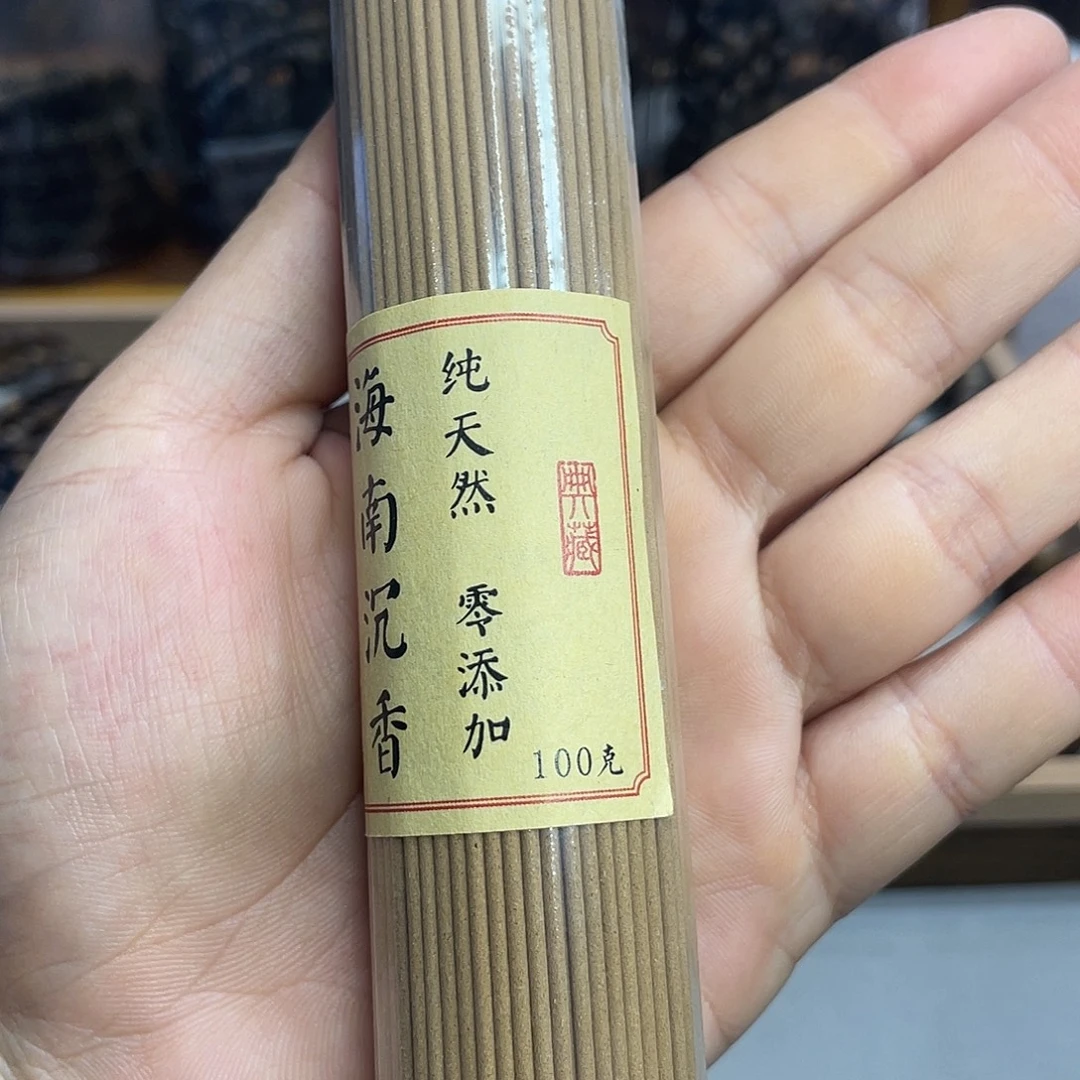 海南沉香
纯天然 零添加
典藏
100克